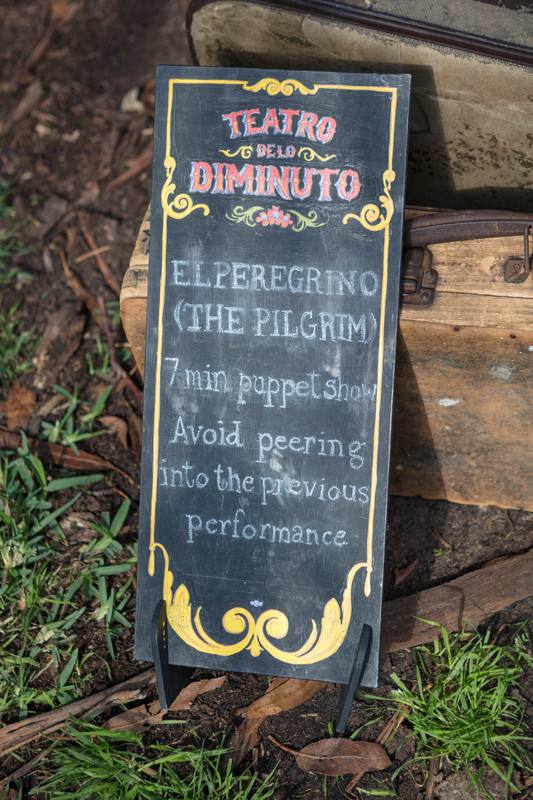 TEATRO
DE LO
DIMINUTO
EL PEREGRINO
(THE PILGRIM)
7 min puppet show
Avoid peering
into the previous
performance